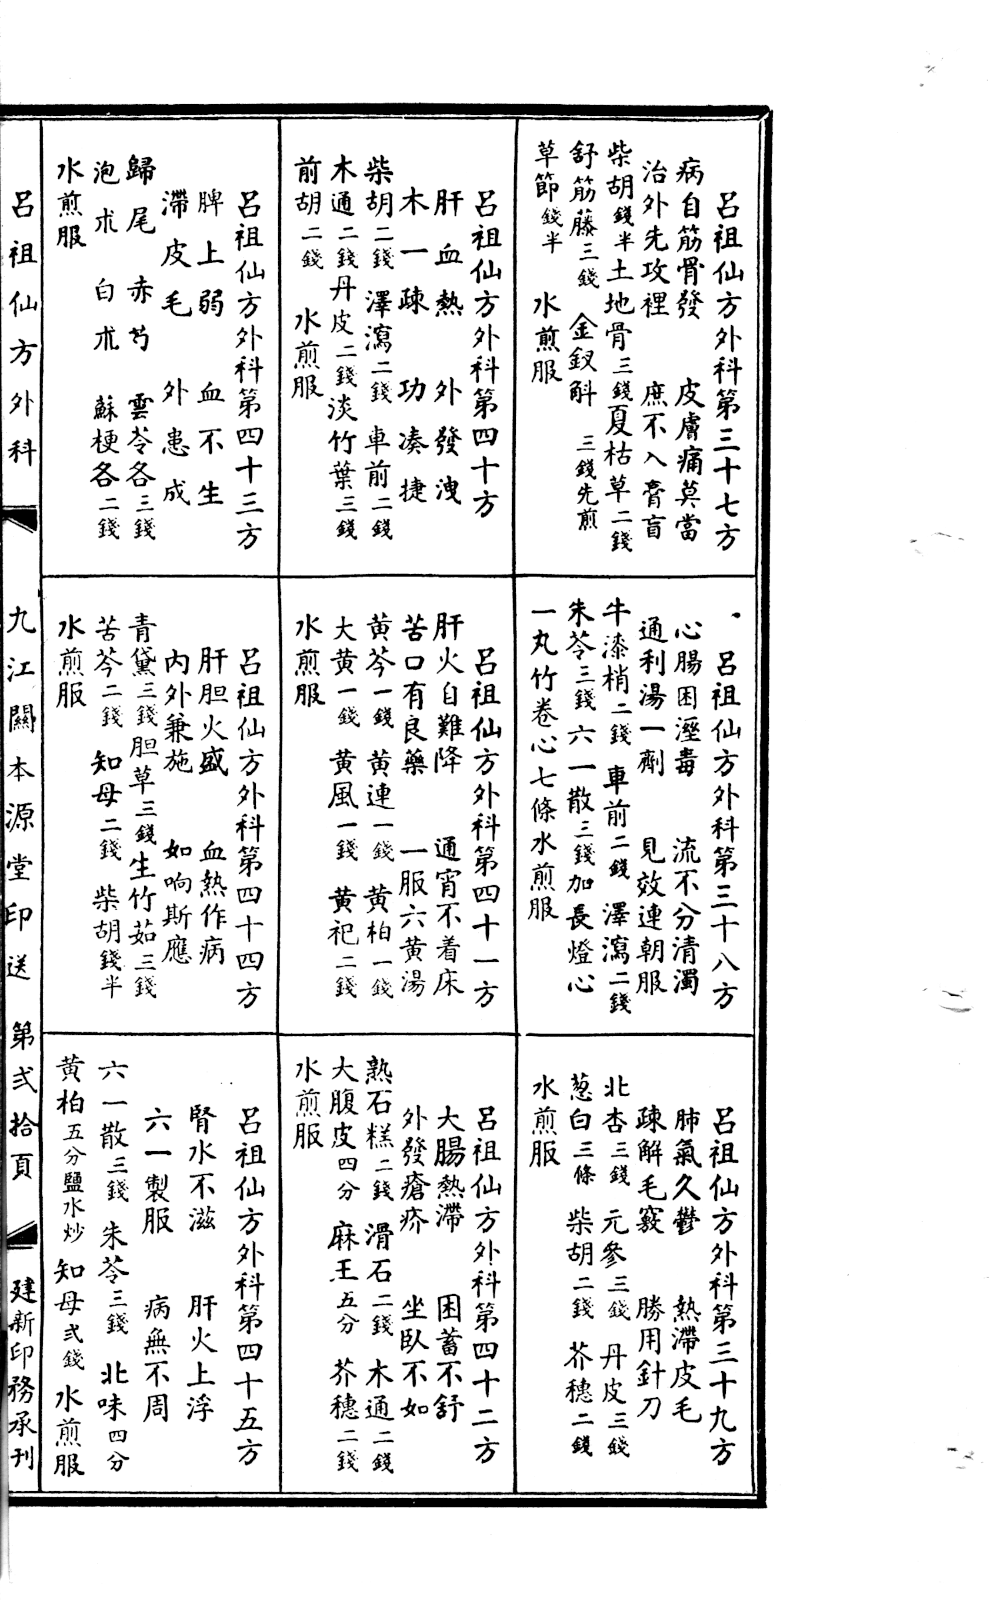 呂祖仙方外科第三十七方
病自筋骨發　皮膚痛莫當
治外先攻裡　庶不入膏盲
柴胡錢半土地骨三錢夏枯草二錢
舒筋藤三錢　金釵斛　三錢先煎
草節錢半　水煎服
呂祖仙方外科第三十八方
心腸困溼毒　流不分清濁
通利湯一劑　見效連朝服
牛漆梢二錢　車前二錢　澤瀉二錢
朱苓三錢　六一散三錢加長燈心
一丸竹卷心七條水煎服
呂祖仙方外科第三十九方
肺氣久鬱　熱滯皮毛
疎解毛竅　勝用針刀
北杏三錢　元參三錢　丹皮三錢
葱白三條　柴胡二錢　芥穗二錢
水煎服
呂祖仙方外科第四十方
肝血熱　外發洩
木一疎　功凑捷
柴胡二錢　澤瀉二錢　車前二錢
木通二錢丹皮二錢淡竹葉三錢
前胡二錢　水煎服
呂祖仙方外科第四十一方
肝火自難降　通宵不着床
苦口有良藥　一服六黄湯
黄芩一錢　黄連一錢　黄柏一錢
大黄一錢　黄風一錢　黄祀二錢
水煎服
呂祖仙方外科第四十二方
大腸熱滯　困蓄不舒
外發瘡疥　坐臥不如
熟石糕二錢　滑石二錢　木通二錢
大腹皮四分　麻王五分　芥穗二錢
水煎服
呂祖仙方外科第四十三方
脾上弱　血不生
滯皮毛　外患成
歸尾　赤芍　雲苓各三錢
泡朮　白朮　蘇梗各二錢
水煎服
呂祖仙方外科第四十四方
肝胆火盛　血熱作病
内外兼施　如响斯應
青黛三錢胆草三錢生竹茹三錢
苦芩二錢　知母二錢　柴胡錢半
水煎服
呂祖仙方外科第四十五方
腎水不滋　肝火上浮
六一製服　病無不周
六一散三錢　朱苓三錢　北味四分
黄柏五分鹽水炒　知母弍錢　水煎服
呂祖仙方外科　九江關本源堂印送　第弍拾頁　建新印務承刊